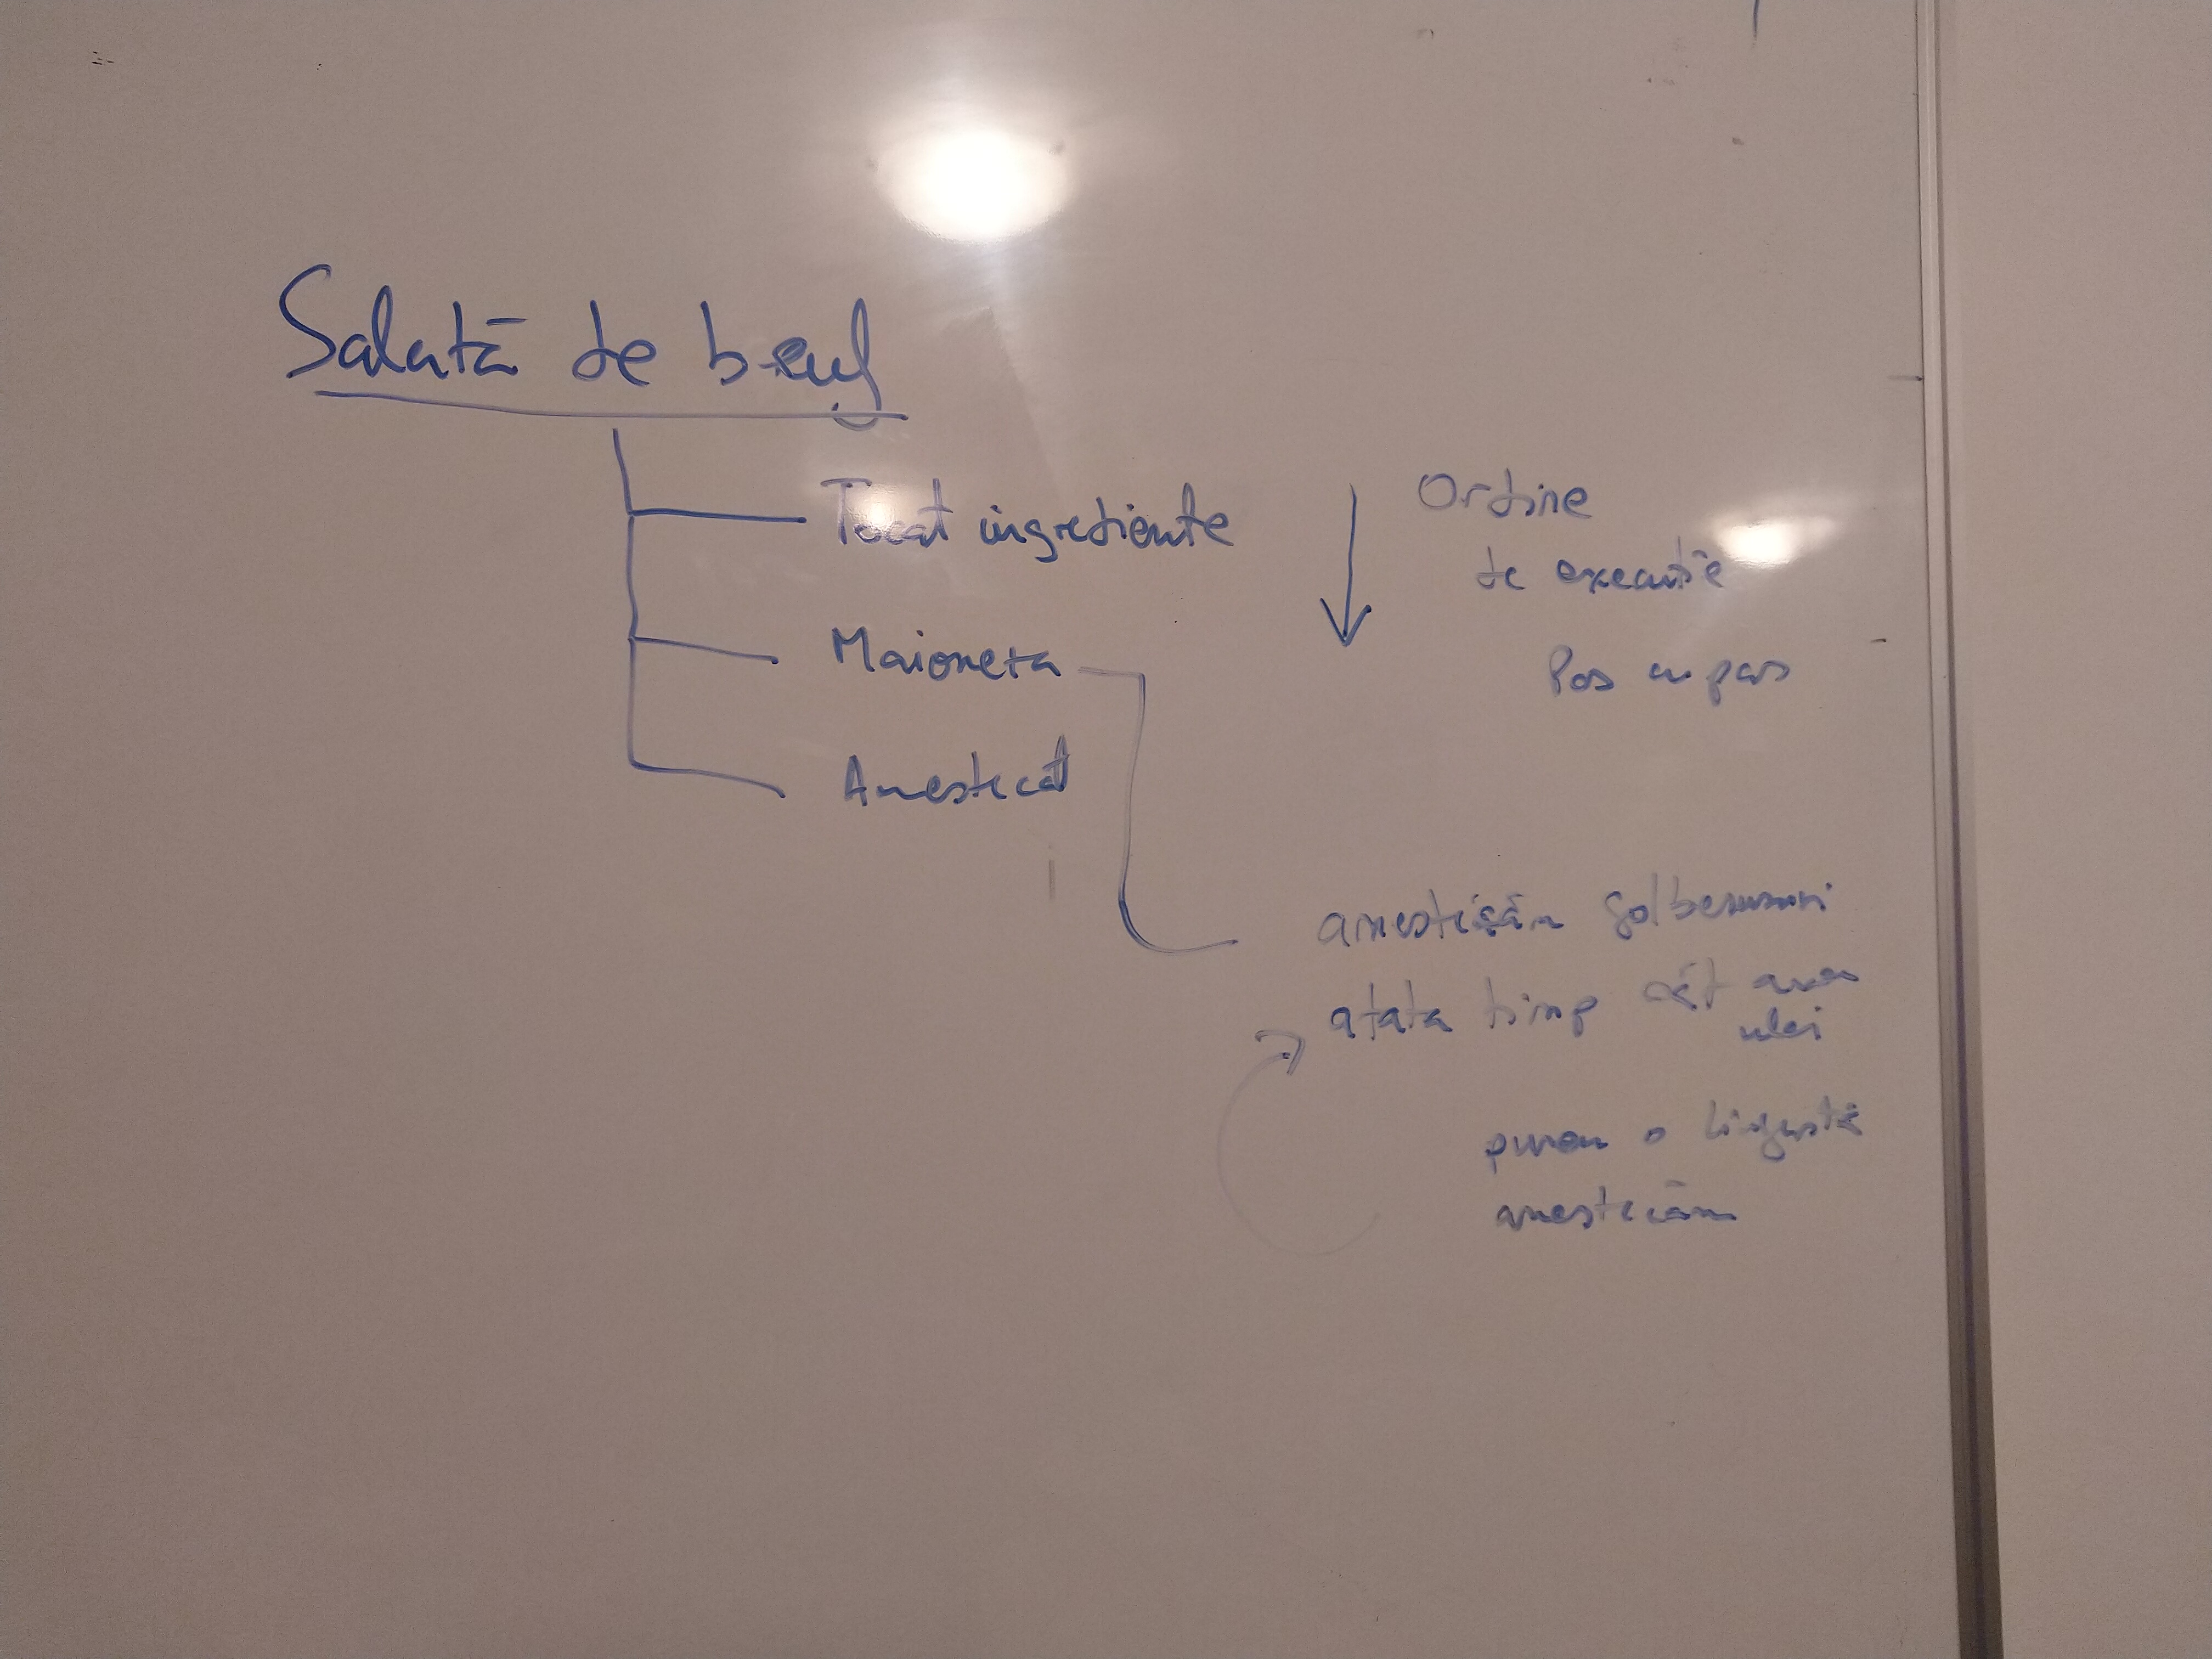 Salată de beuf
Tocat ingrediente
Maioneza
Amestecat
Ordine
de executie
Pas cu pas
amestecăm galbenusuri
atata timp cât avem
ulei
punem o lingurită
amestecăm